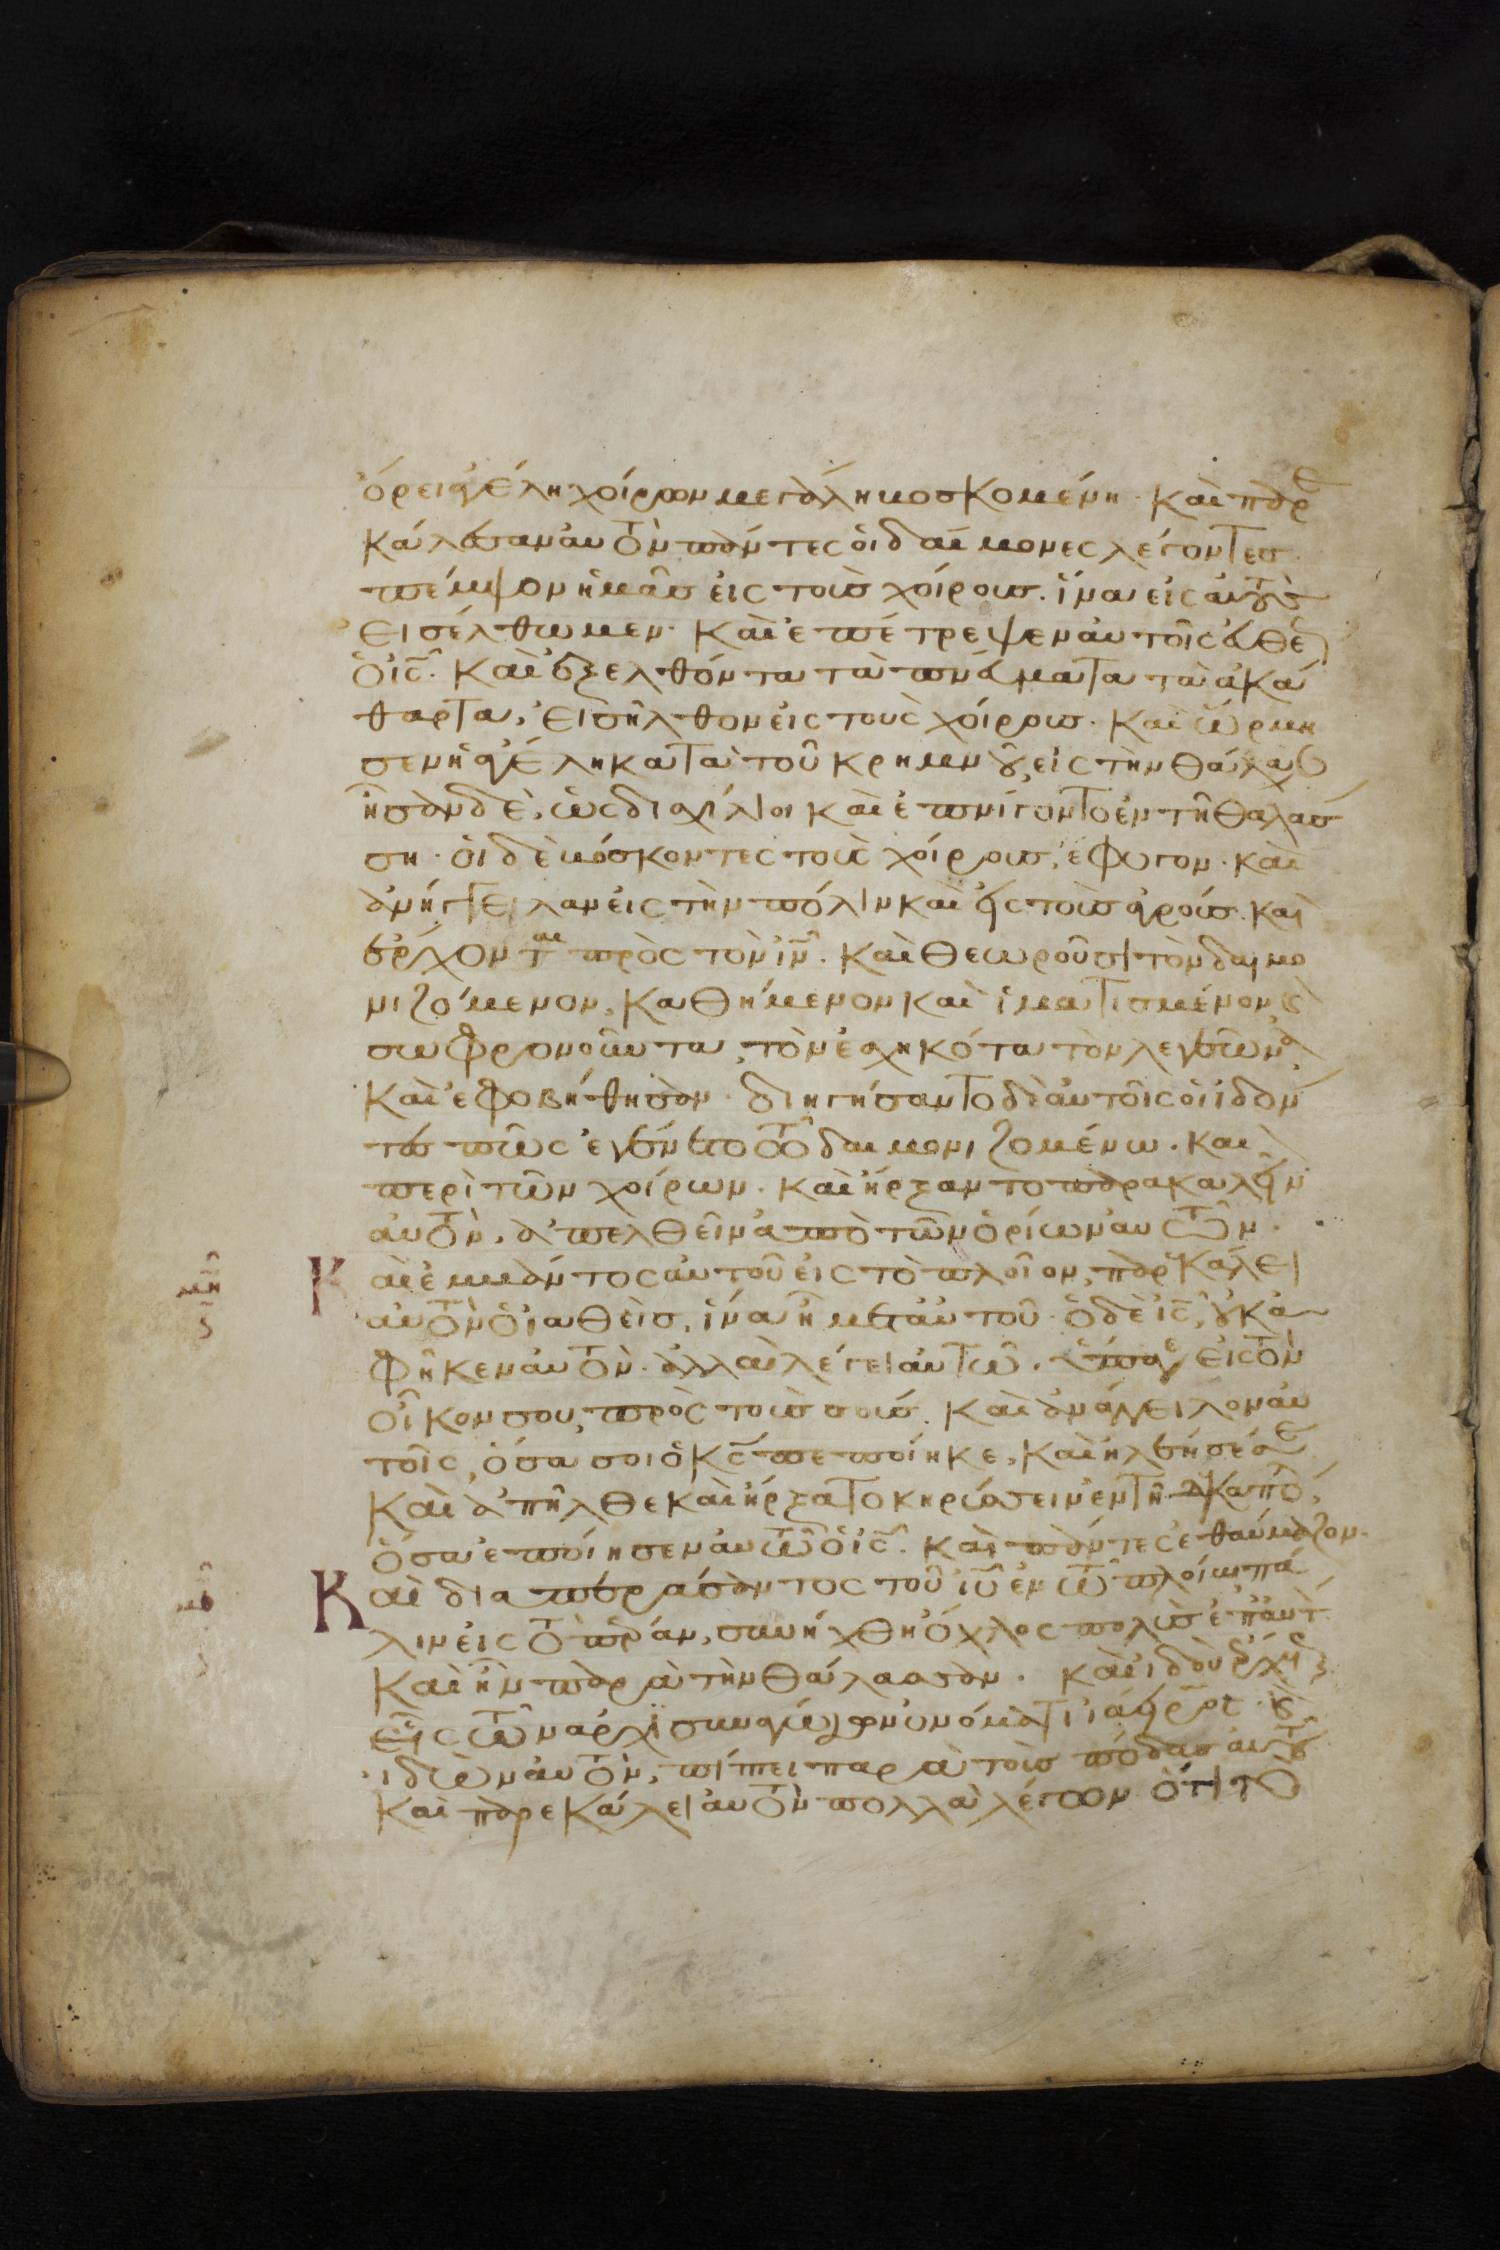 ὄρει ἀγέλη χοίρων μεγάλη βοσκομένη· καὶ παρε
κάλεσαν αὐτὸν πάντες οἱ δαίμονες λέγοντες·
πέμψον ἡμᾶς εἰς τοὺς χοίρους· ἵνα εἰς αὐτοὺς
εἰσέλθωμεν· καὶ ἐπέτρεψεν αὐτοῖς εὐθέως
ὁ ις̅· καὶ ἐξελθόντα τὰ πνεύματα τὰ ἀκά
θαρτα, εἰσῆλθον εἰς τοὺς χοίρους· καὶ ὥρμη
σεν ἡ ἀγέλη κατὰ τοῦ κρημνοῦ εἰς τὴν θάλασ
ἦσαν δὲ, ὡς δισχίλιοι καὶ ἐπνίγοντο ἐν τῇ θαλάσ
ση· οἱ δὲ βόσκοντες τοὺς χοίρους, ἔφυγον· καὶ
ἀνήγγειλαν εἰς τὴν πόλιν καὶ εἰς τοὺς ἀγρούς· καὶ
ἔρχονται πρὸς τὸν ιν̅· καὶ θεωροῦσι τὸν δαιμο
νιζόμενον, καθήμενον καὶ ἱματισμένον καὶ
σωφρονοῦντα, τὸν ἐσχηκότα τὸν λεγεῶνα
καὶ ἐφοβήθησαν· διηγήσαντο δὲ αὐτοῖς οἱ ἰδόν
τες πῶς ἐγένετο τῷ δαιμονιζομένω· καὶ
περὶ τῶν χοίρων· καὶ ἤρξαντο παρακαλεῖν
αὐτὸν, ἀπελθεῖν ἀπὸ τῶν ὁρίων αὐτῶν·
μη̅
ϛ
Καὶ ἐμβάντος αὐτοῦ εἰς τὸ πλοῖον, παρεκάλει
αὐτὸν ὁ ἰαθεὶς, ἵνα ἦ μετ' αὐτοῦ· ὁ δὲ ις̅, οὐκ ἀ
φῆκεν αὐτὸν· ἀλλὰ λέγει αὐτῶ· ὕπαγε εἰς τὸν
οἶκον σου, πρὸς τοὺς σούς· καὶ ἀνάγγειλον αὐ
τοῖς, ὅσα σοι ὁ κς̅ πεποίηκε, καὶ ἠλέησέ σε
καὶ ἀπῆλθε καὶ ἤρξατο κηρύσσειν ἐν τῇ Δεκαπόλ
ὅσα ἐποίησεν αὐτῶ ὁ ις̅· καὶ πάντες ἐθαύμαζον·
μθ̅
Καὶ διαπεράσαντος τοῦ ιυ̅ ἐν τῶ πλοίω πά
λιν εἰς τὸ πέραν, συνήχθη ὄχλος πολὺς ἐπ' αὐτ
καὶ ἦν παρὰ τὴν θάλασσαν· καὶ ἰδοὺ ἔρχεται
εἷς τῶν ἀρχισυναγώγων ὀνόματι ἰάειρος· καὶ
ἰδὼν αὐτὸν, πίπτει παρὰ τοὺς πόδας αὐτοῦ
καὶ παρεκάλει αὐτὸν πολλὰ λέγων ὅτι τὸ